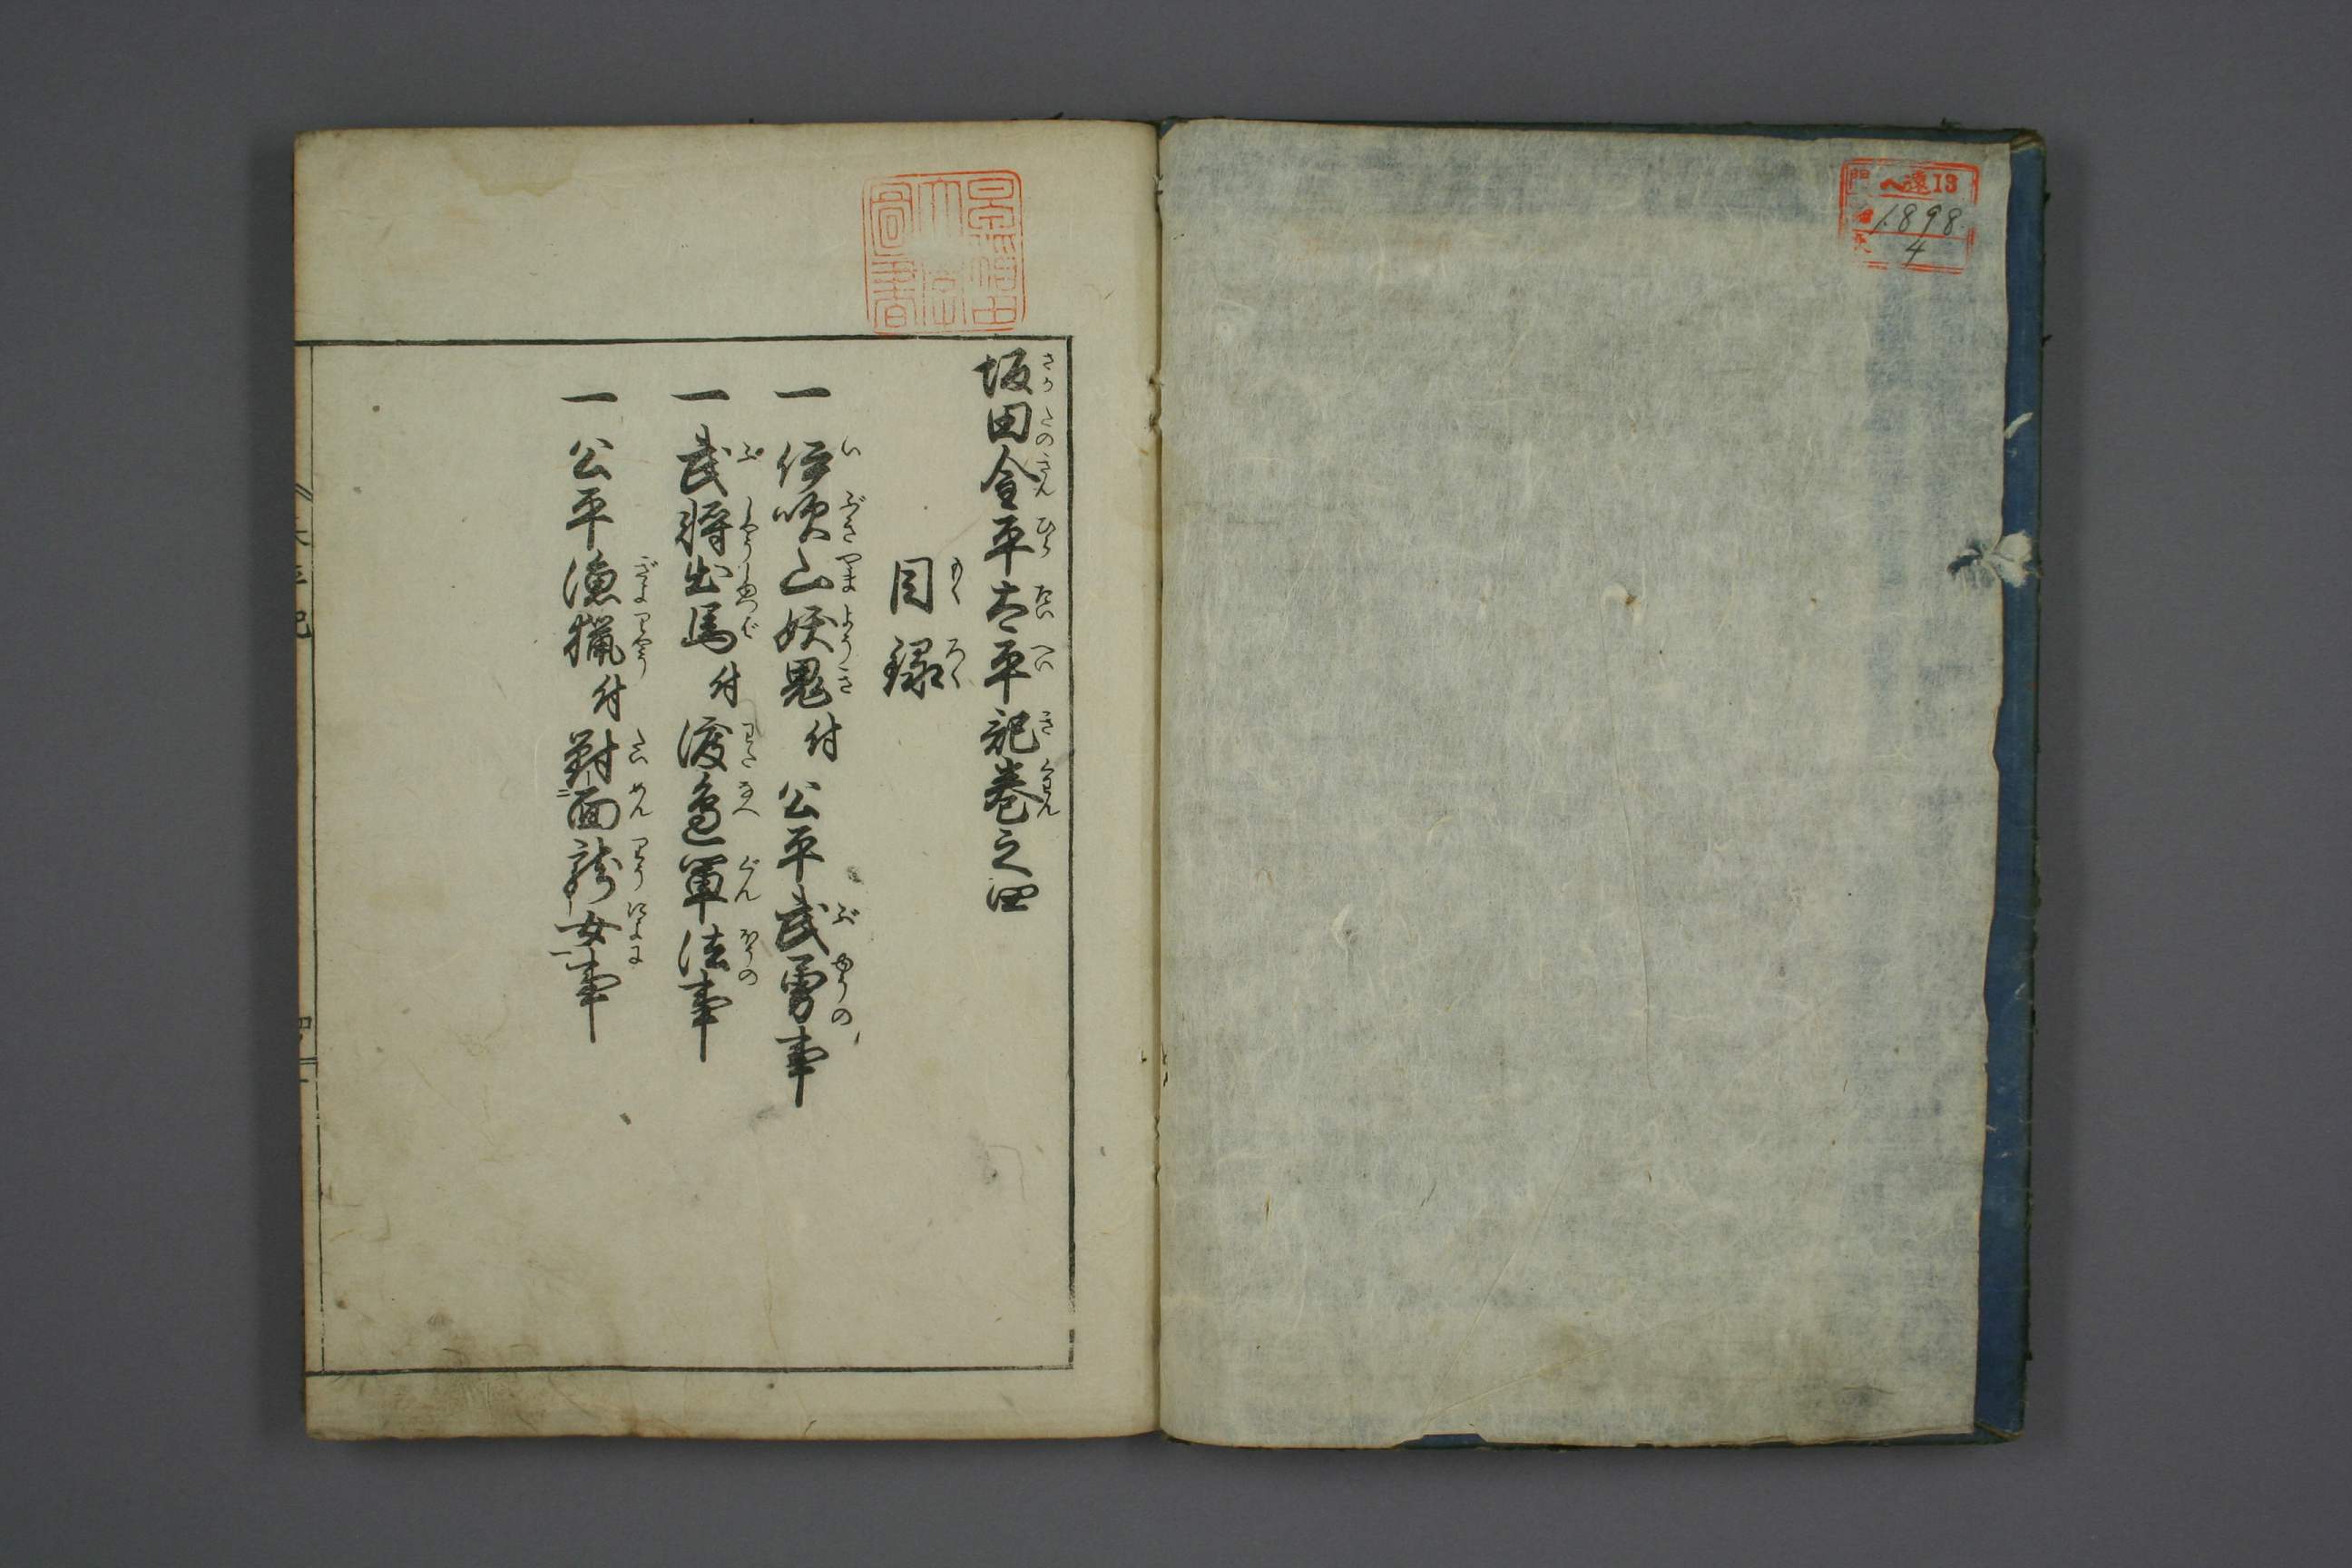 門 ヘ遠13
1898
4
坂田金平太平記巻之四
目録
一 伊吹山妖鬼付公平武勇事
一 武将出馬付渡邉軍法事
一 公平漁猟付對面龍女事